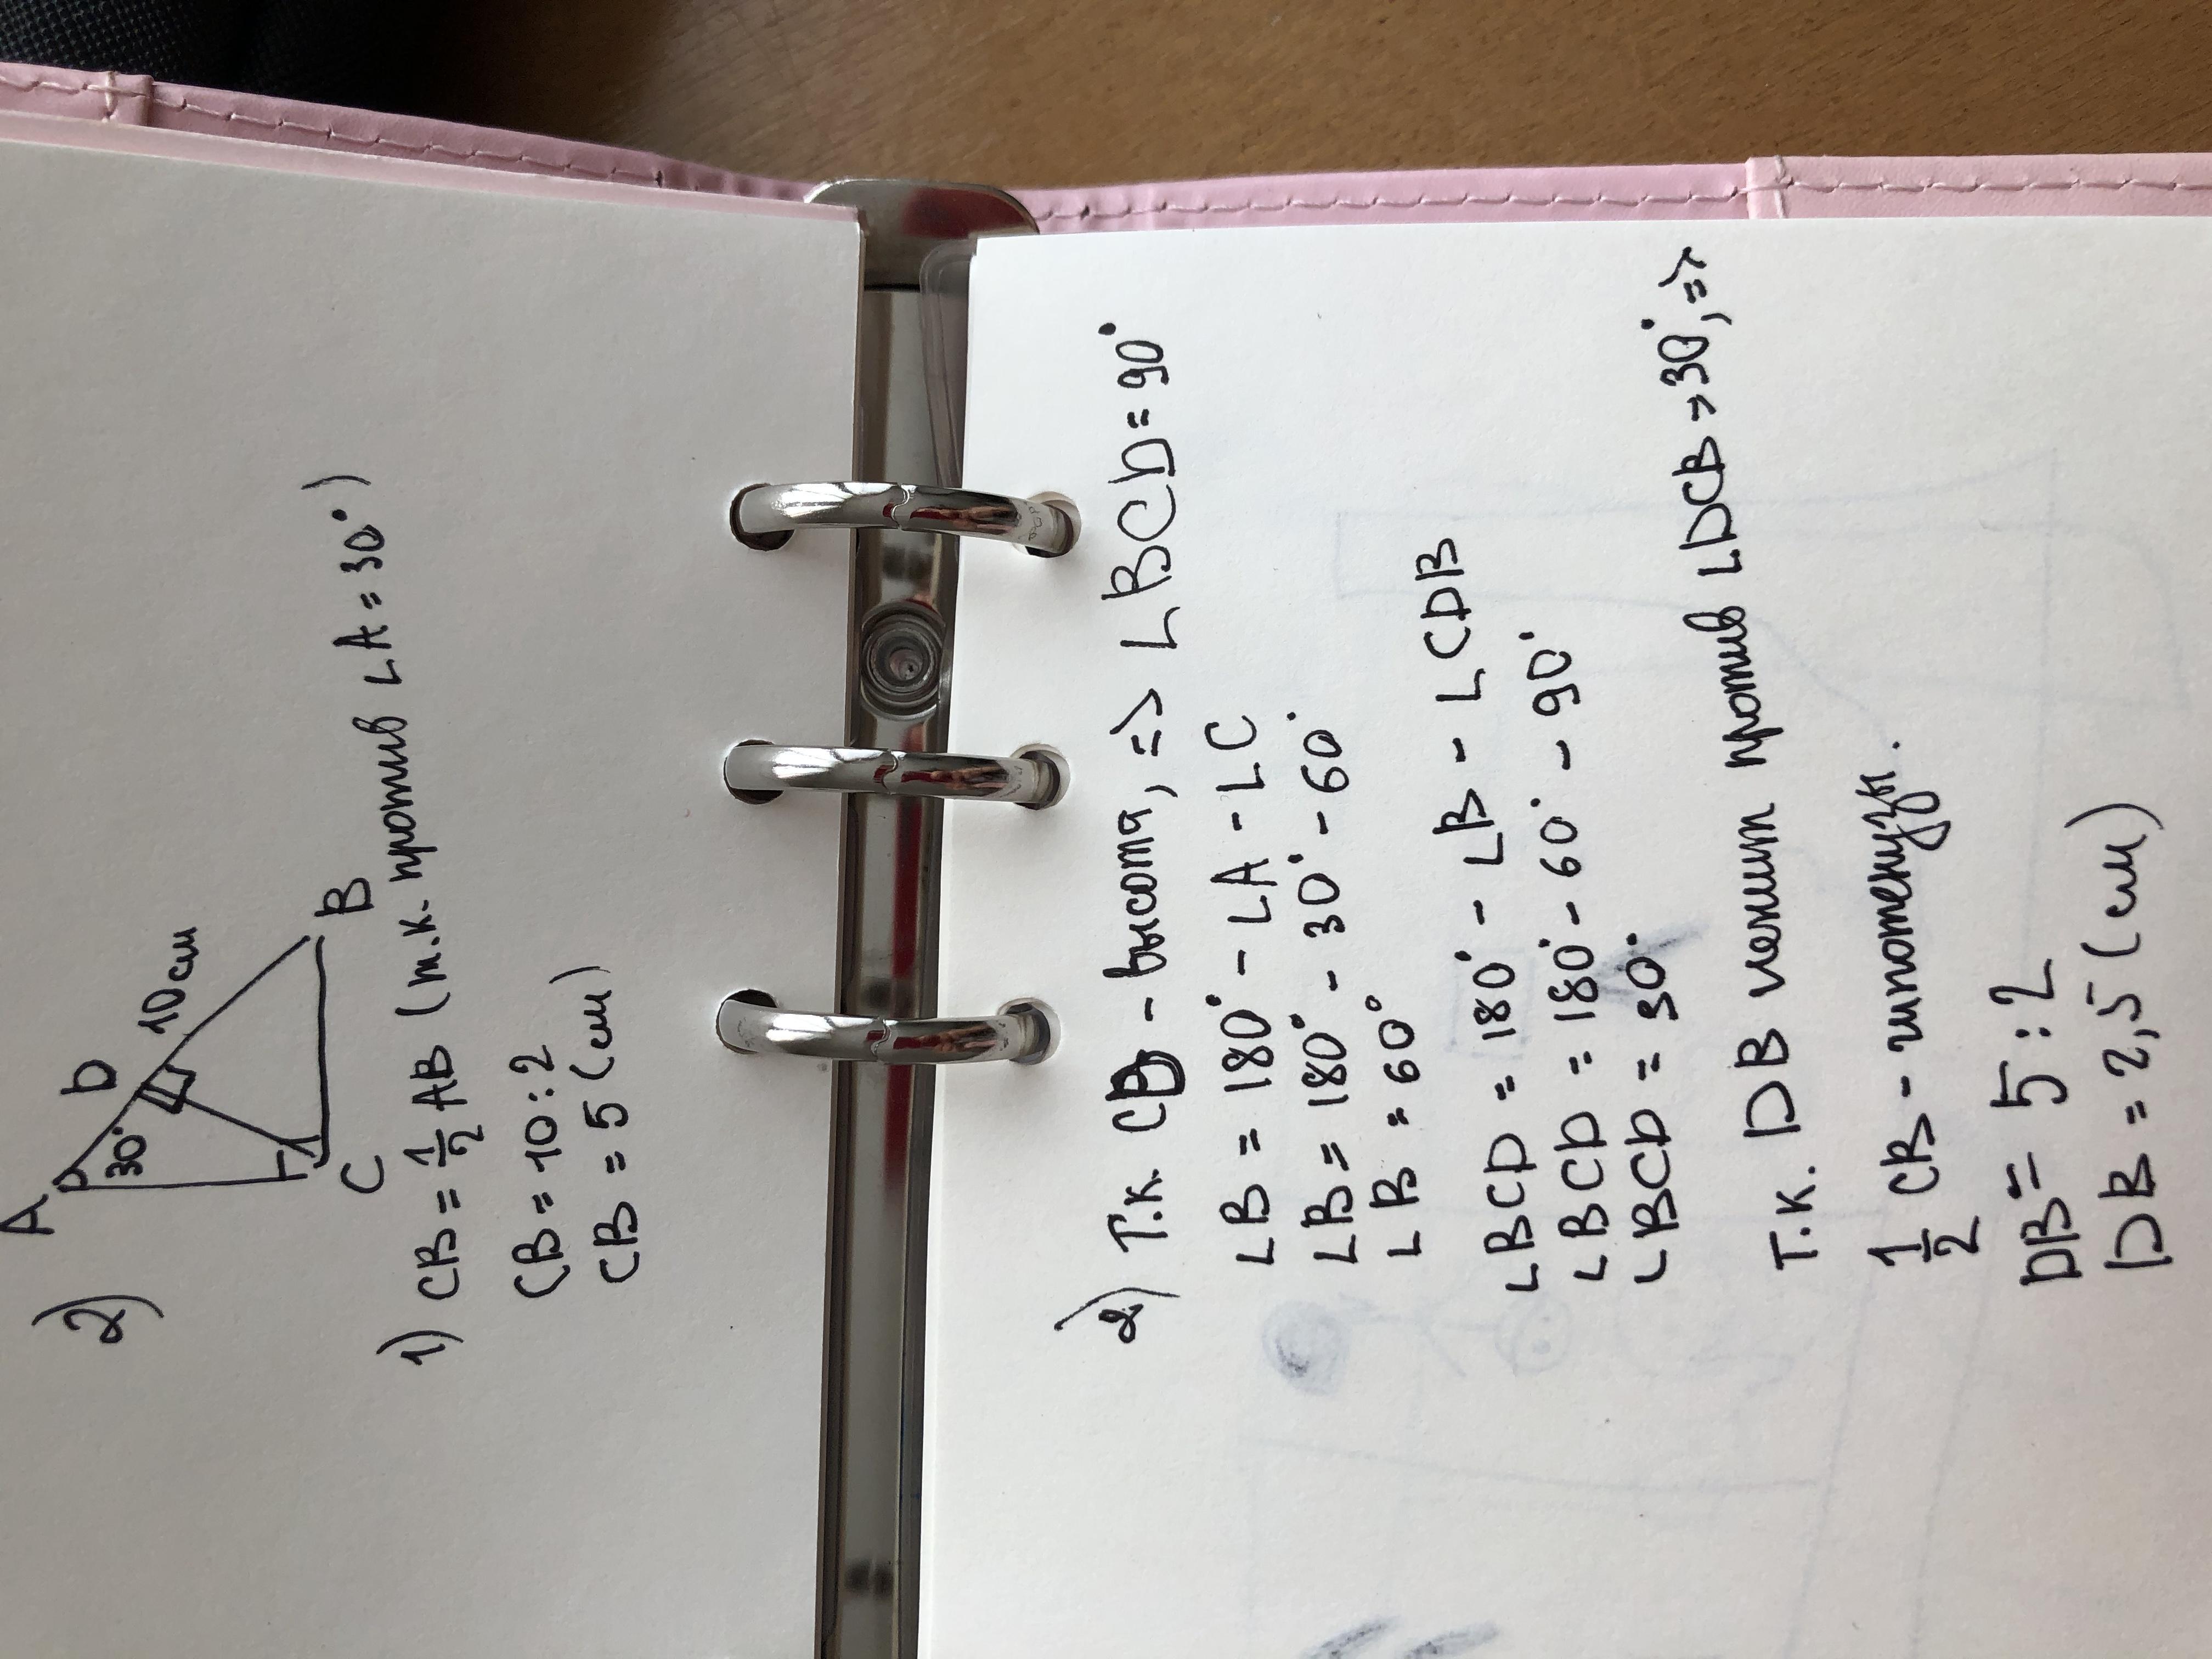 2)
A
30°
D
10 см
C
B
1) CB = 1/2 AB (т.к. против ∠A = 30°)
CB = 10:2
CB = 5 (см)
2) Т.к. CD - высота, => ∠BCD = 90°
∠B = 180° - ∠A - ∠C
∠B = 180° - 30° - 60°
∠B = 60°
∠BCD = 180° - ∠B - ∠CDB
∠BCD = 180° - 60° - 90°
∠BCD = 30°
Т.к. DB лежит против ∠DCB = 30°, =>
1/2 CB - гипотенузы.
DB = 5:2
DB = 2,5 (см)